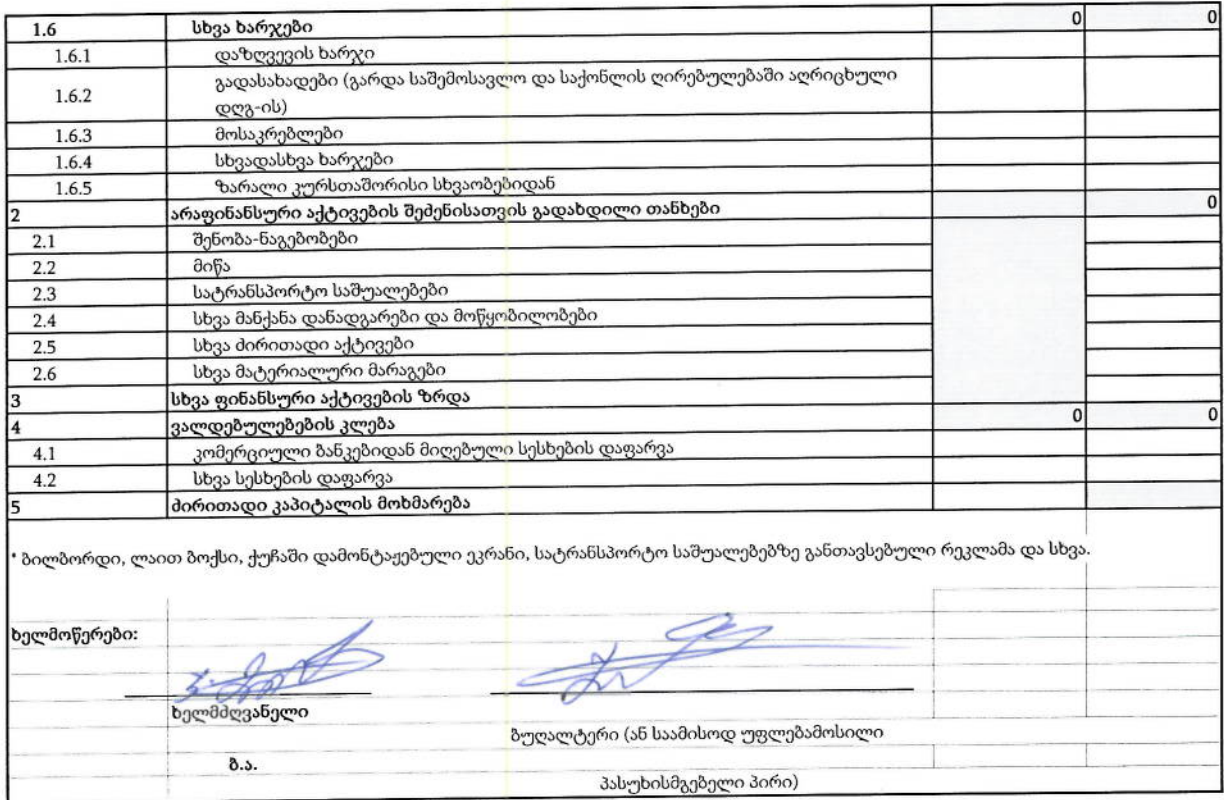 1.6 სხვა ხარჯები 0 0
1.6.1 დაზღვევის ხარჯი
გადასახადები (გარდა საშემოსავლო და საქონლის ღირებულებაში აღრიცხული
1.6.2
დღგ-ის)
1.6.3 მოსაკრებლები
1.6.4 სხვადასხვა ხარჯები
1.6.5 ზარალი კურსთაშორისი სხვაობებიდან
2 არაფინანსური აქტივების შეძენისათვის გადახდილი თანხები 0
2.1 შენობა-ნაგებობები
2.2 მიწა
2.3 სატრანსპორტო საშუალებები
2.4 სხვა მანქანა დანადგარები და მოწყობილობები
2.5 სხვა ძირითადი აქტივები
2.6 სხვა მატერიალური მარაგები
3 სხვა ფინანსური აქტივების ზრდა
4 ვალდებულებების კლება 0 0
4.1 კომერციული ბანკებიდან მიღებული სესხების დაფარვა
4.2 სხვა სესხების დაფარვა
5 ძირითადი კაპიტალის მოხმარება
* ბილბორდი, ლაით ბოქსი, ქუჩაში დამონტაჟებული ეკრანი, სატრანსპორტო საშუალებებზე განთავსებული რეკლამა და სხვა.
ხელმოწერები:
ხელმძღვანელი
ბუღალტერი (ან საამისოდ უფლებამოსილი
ბ.ა.
პასუხისმგებელი პირი)